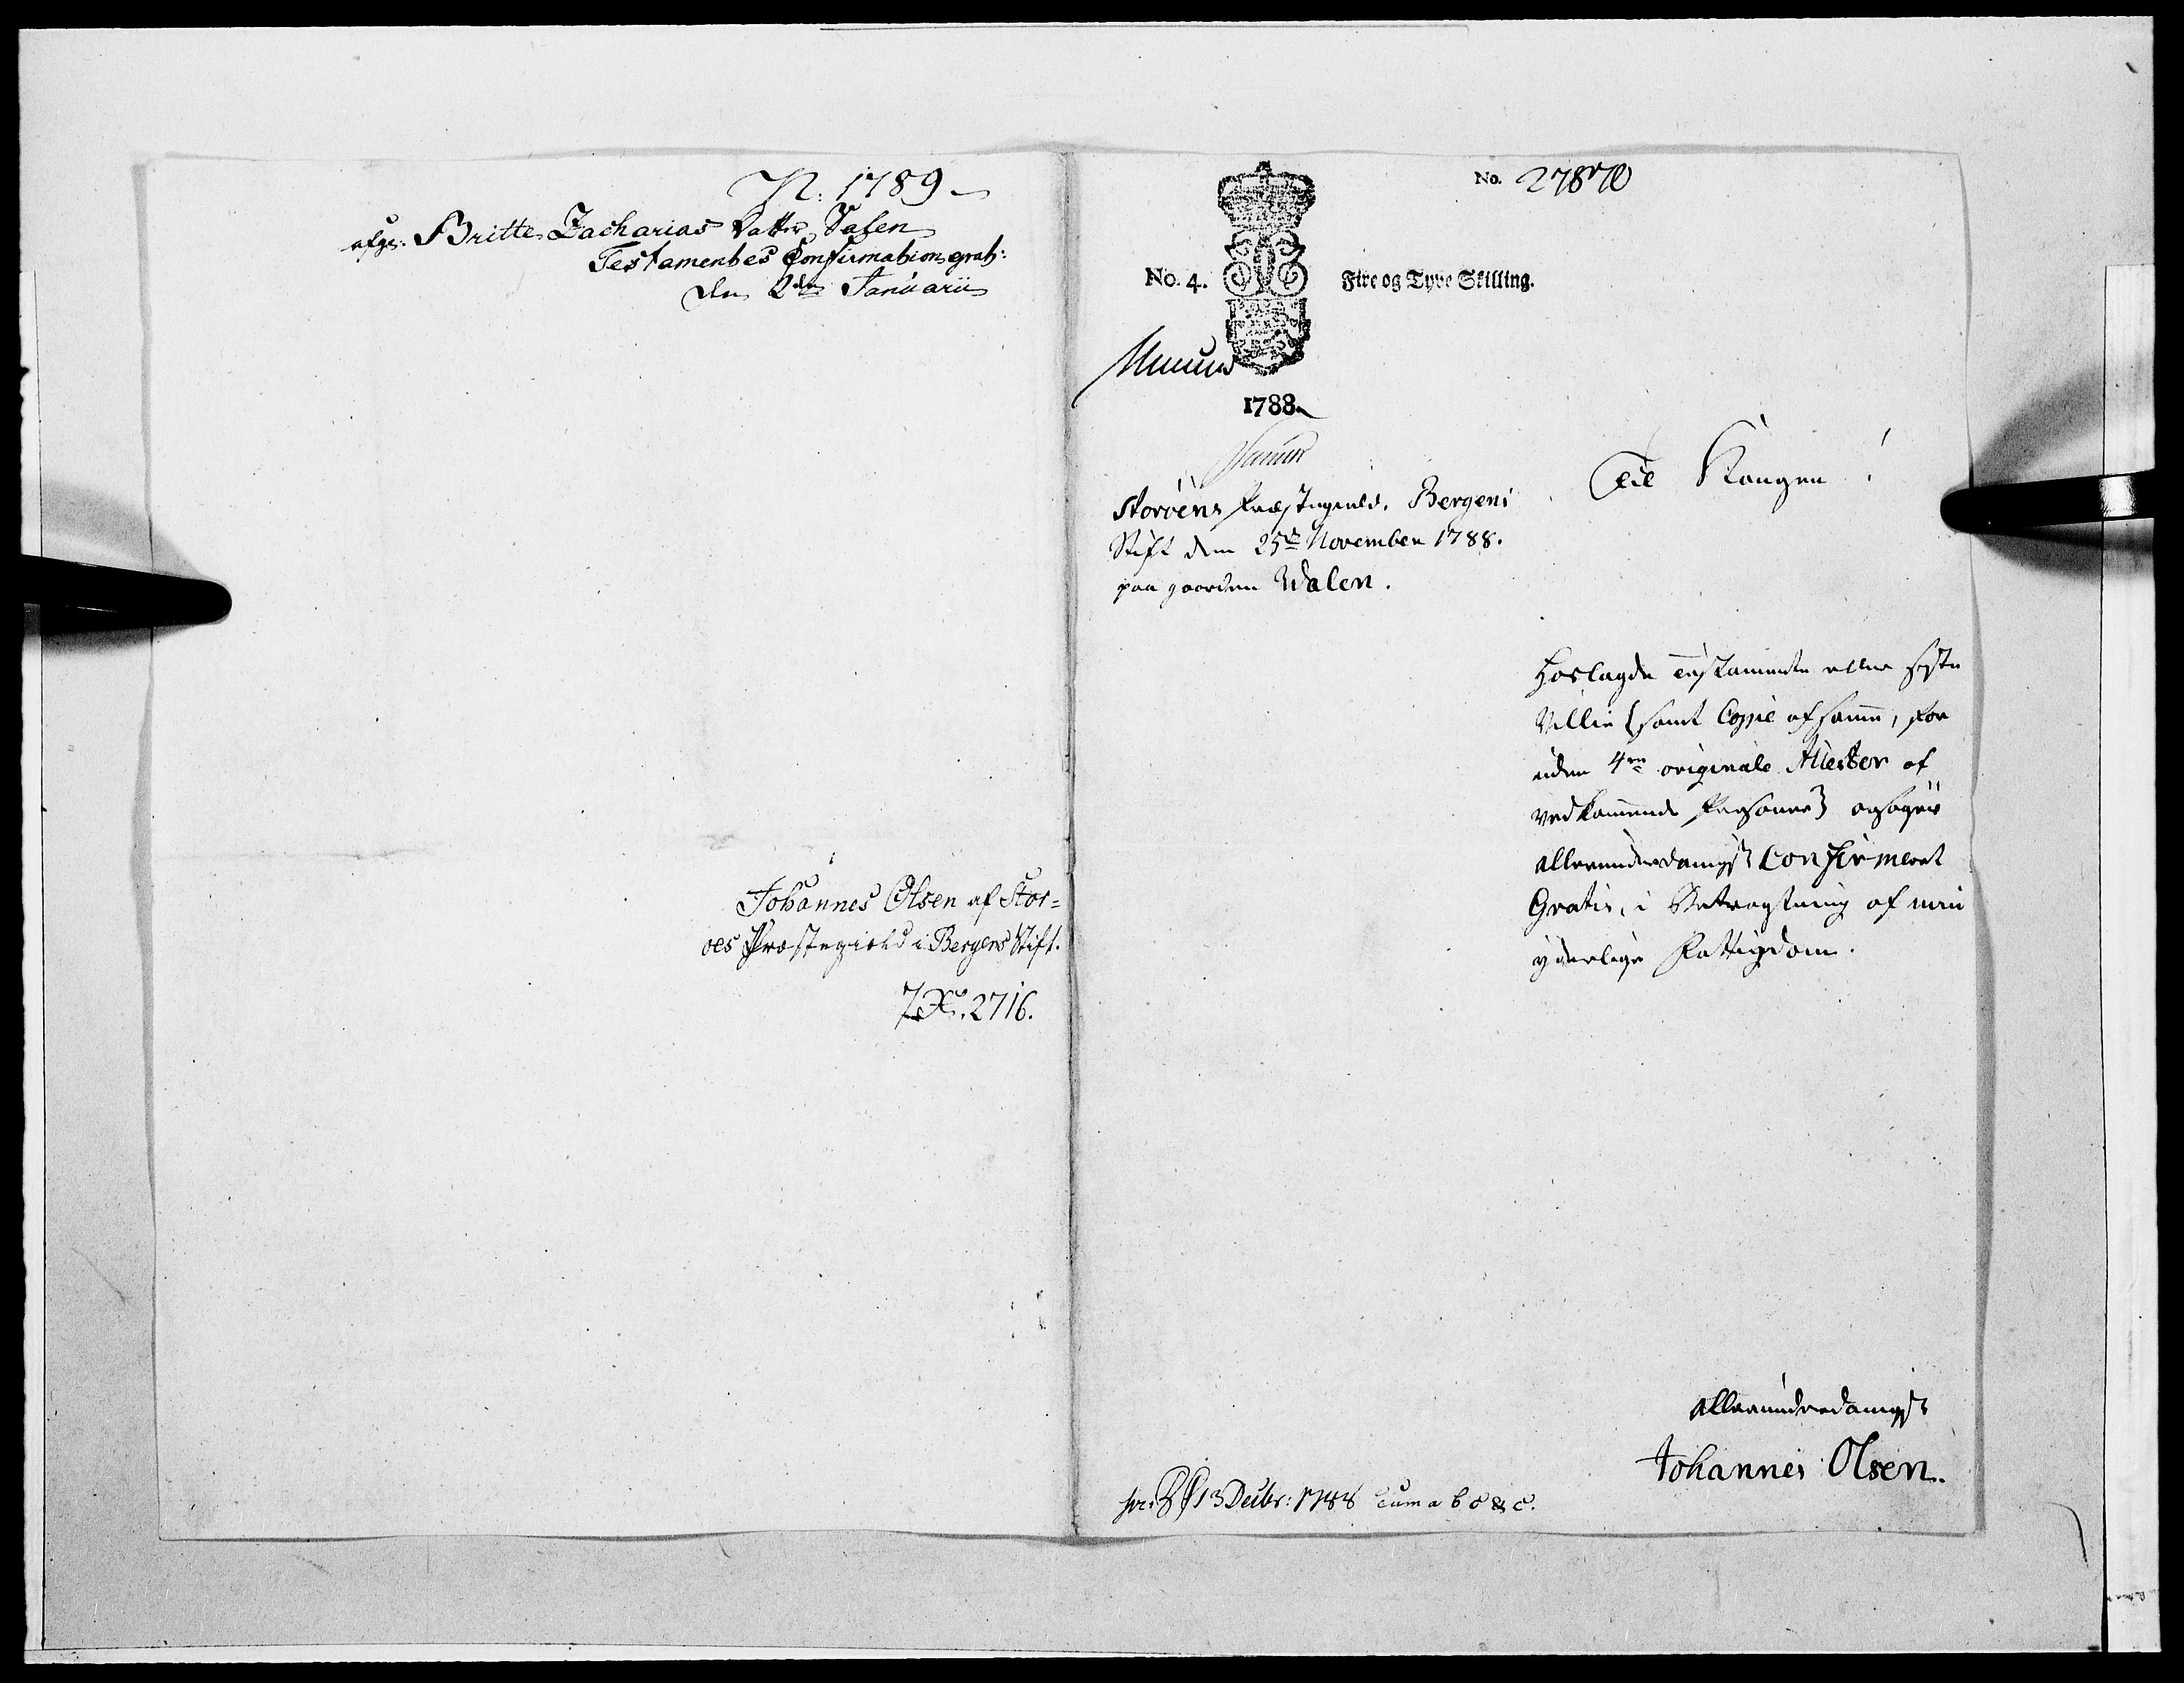 N: 1789
afg: Britte Zacharias Datter Valen
Testamentes Confirmation grat:
den 2den Januarii
Johannes Olsen af Stor=
øes Præstegield i Bergens Stift.
2716.
No. 27870
No. 4. Fire og Tyve Skilling.
1788
Til Kongen!
Storøens Præstegield, Bergens
Stift den 25de November 1788.
paa gaarden Walen.
Hoslagde Testamente eller sidste
Villie (samt Copie af samme, for
uden 4re originale Attester af
vedkommende Personer) ansøges
allerunderdanigst Confirmeret
Gratis, i Betragtning af min
yderlige Fattigdom.
allerunderdanigst
Johannes Olsen.
13 Decbr: 1788 cum a b c & c.